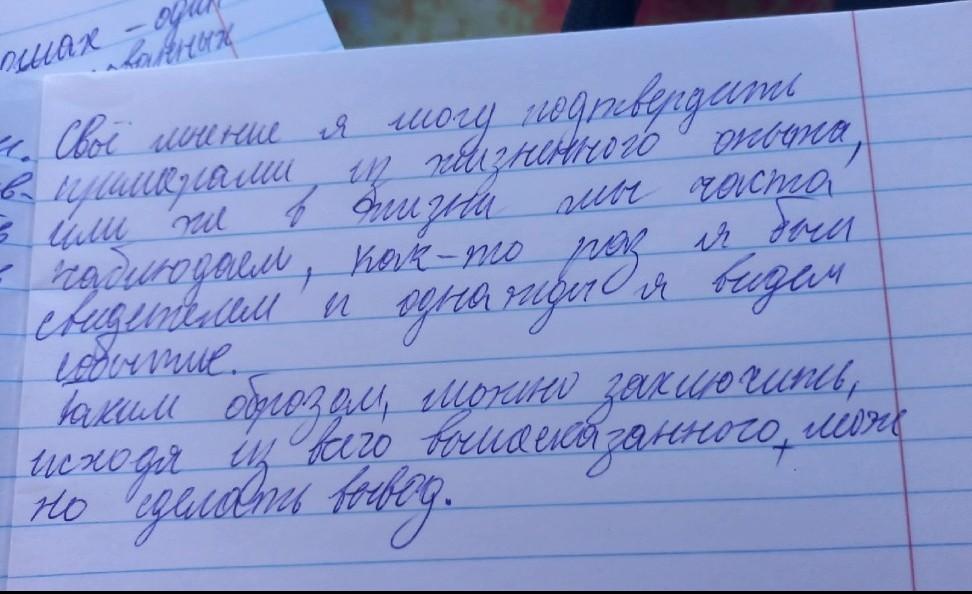 ошах - один
ованных
н.
в-
Своё мнение я могу подтвердить
примерами из жизненного опыта,
или же в жизни мы часто
наблюдаем, как-то раз я был
свидетелем и однажды я видел
событие.
Таким образом, можно заключить,
исходя из всего вышесказанного, мож
но сделать вывод.